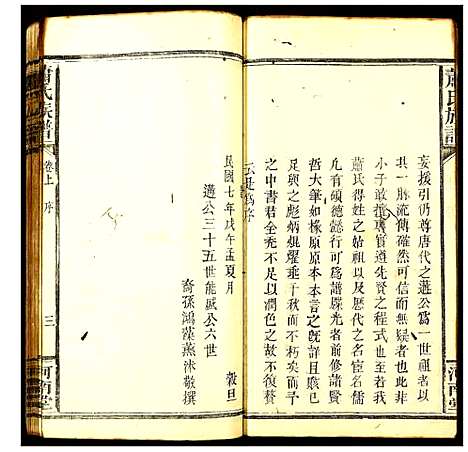 蕭氏族譜
河南堂
妄援引仍尊唐代之遘公為一世祖者以
其一脉流傳確然可信而無疑者也此非
小子敢擅專實道先賢之程式也至若
蕭氏得姓之始祖以及歷代之名宦名儒
凡有碩德懿行可為譜牒光者前修諸賢
哲大筆如椽原原本本言之旣詳且賅已
足與之彪炳焜燿垂于千秋而不朽矣又焉
之中書君全禿不足以潤色之故不復贅
云是為序
民國七年戊午孟夏月 穀旦
遘公三十五世能威公六世
裔孫鴻藻薰沐敬撰
蕭氏族譜
卷上 序
三
河南堂